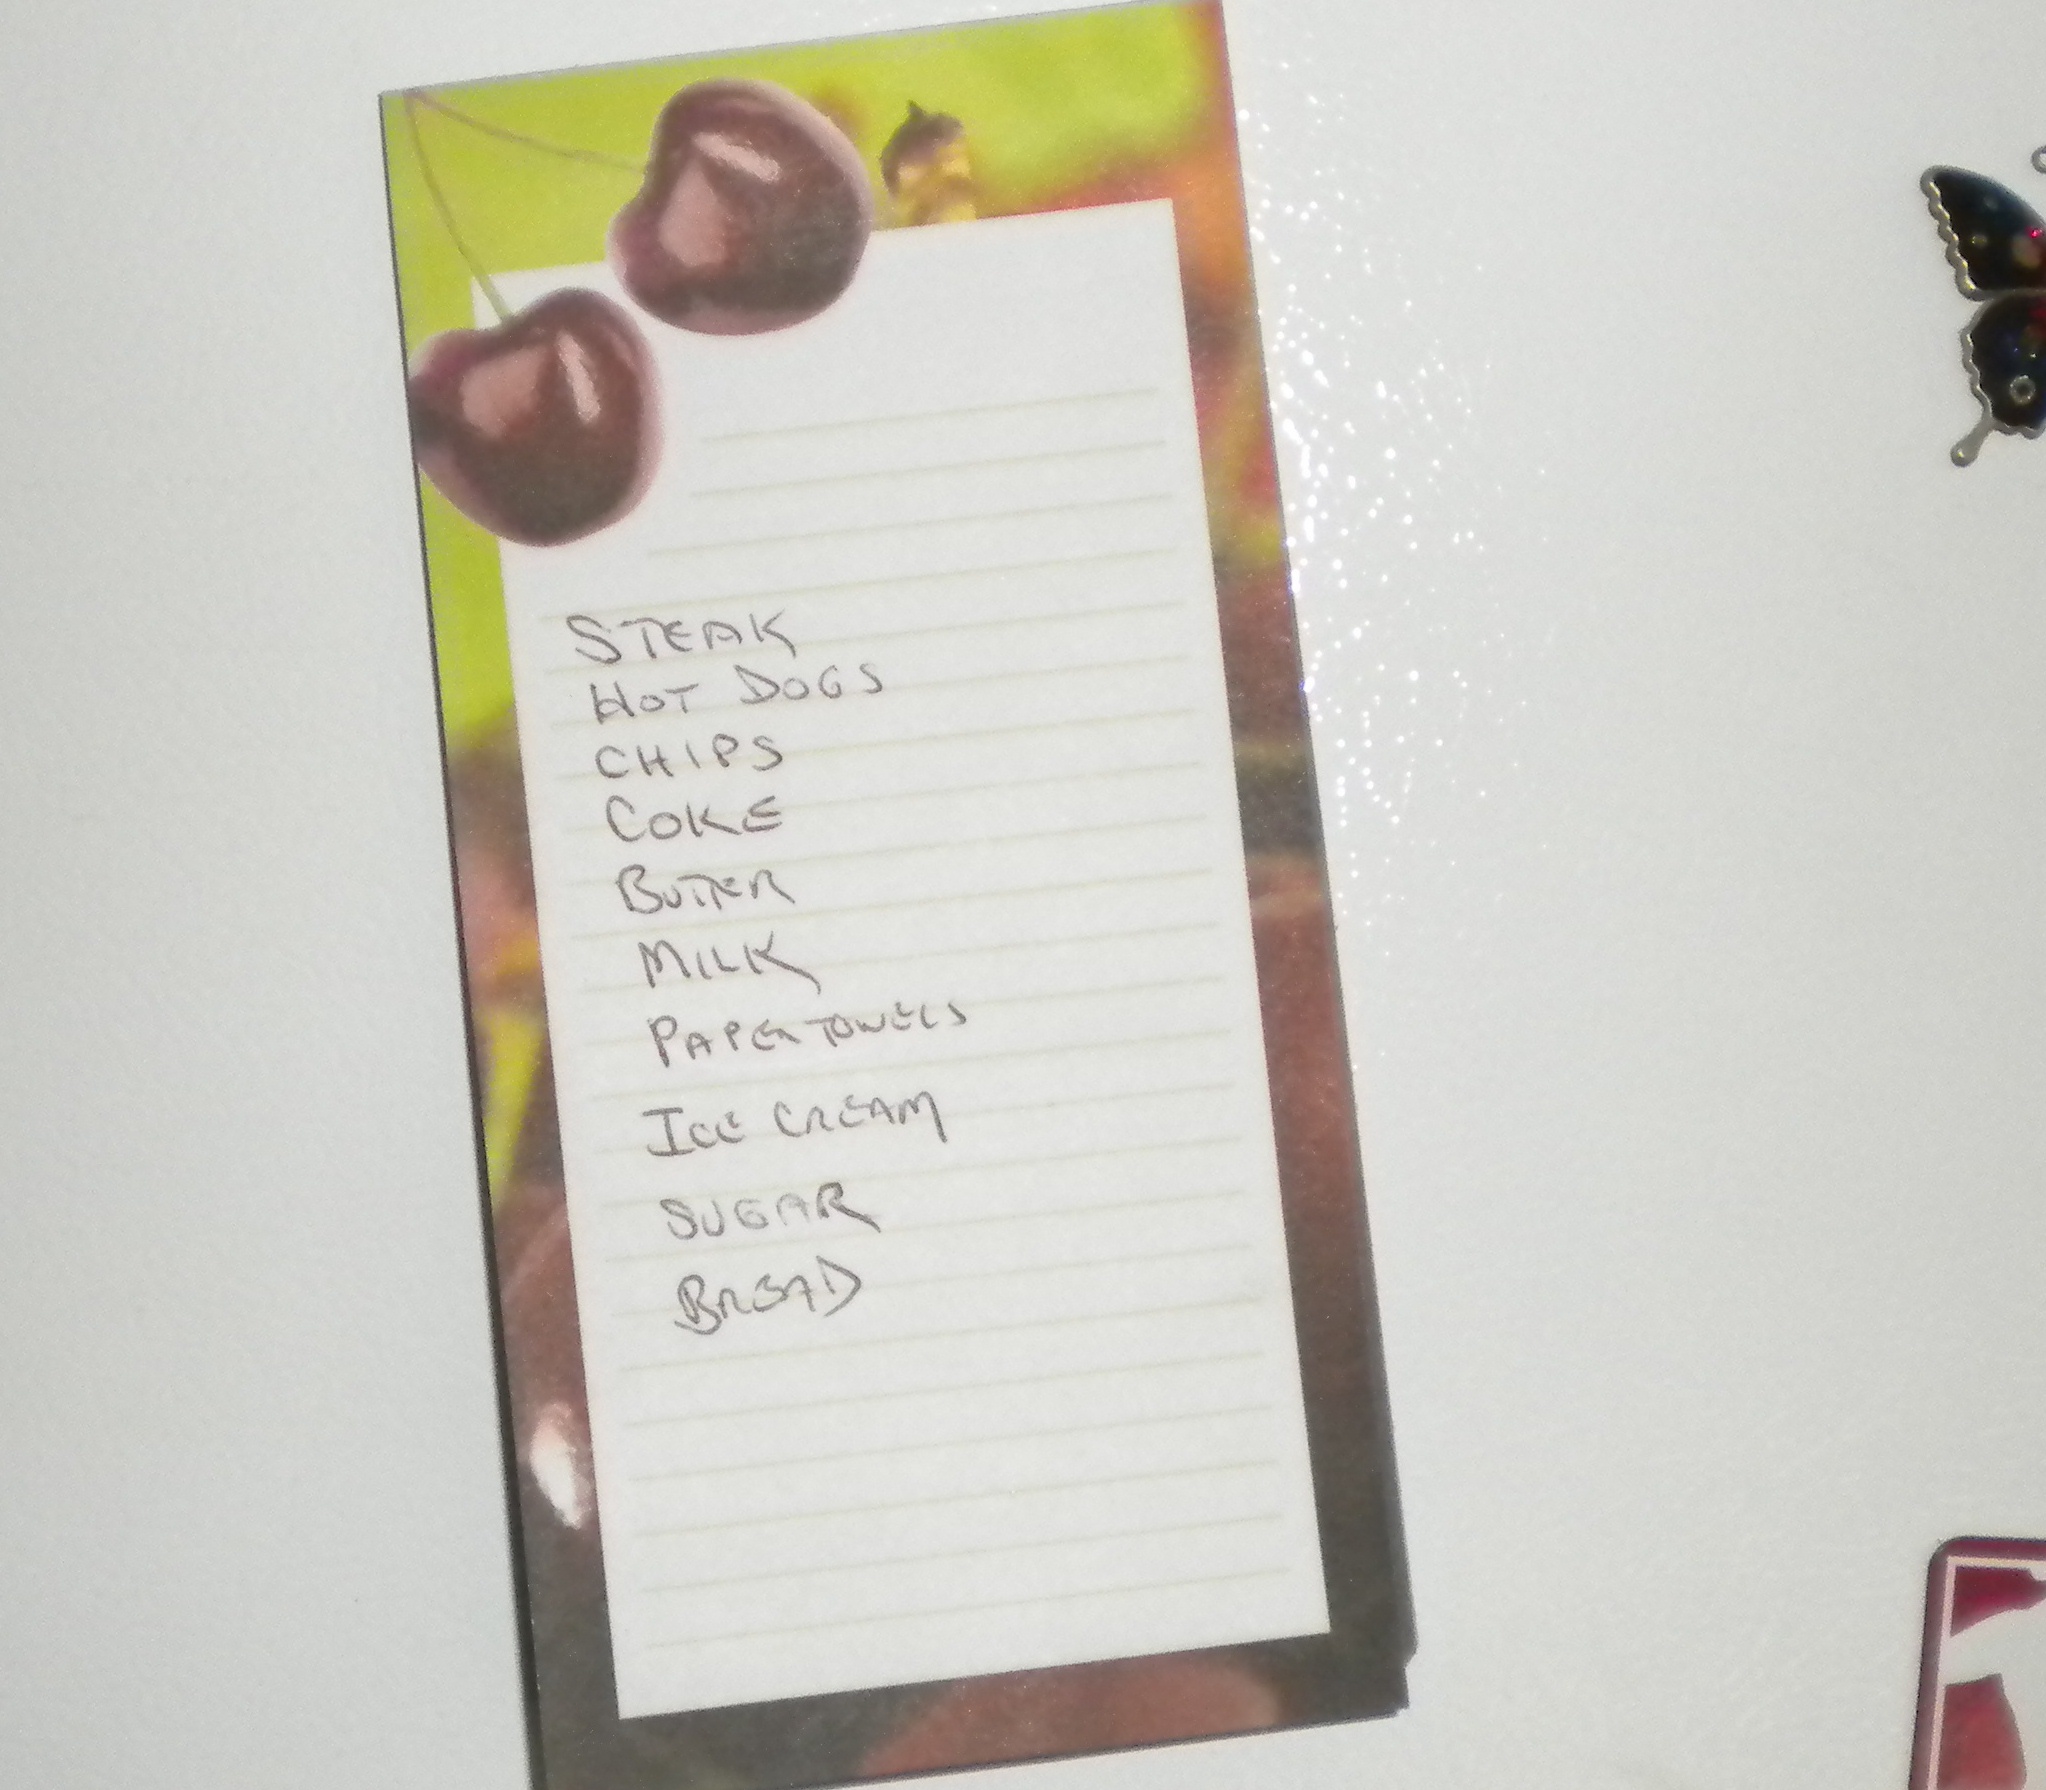 STEAK
HOT DOGS
CHIPS
COKE
BUTTER
MILK
PAPER TOWELS
ICE CREAM
SUGAR
BREAD